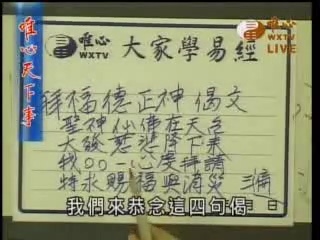 唯心天下事
唯心
WXTV
大家學易經
唯心
WXTV
LIVE
福德正神偈文
聖神仙佛在天台
大發慈悲降下來
我〇〇一心虔拜請
特求賜福與消災
我們來恭念這四句偈
日